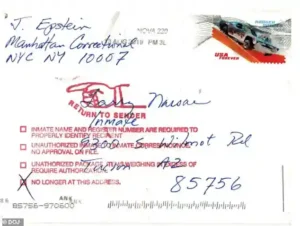 J. Epstein
Manhattan Correctional
NYC NY 10007
PM 2L
USA
FOREVER
Larry Nassar
RETURN TO SENDER
Inmate
INMATE NAME AND REGISTER NUMBER ARE REQUIRED TO
PROPERLY IDENTIFY RECIPIENT
UNAUTHORIZED INMATE CORRESPONDENCE
NO APPROVAL ON FILE.
Wilmot Rd
UNAUTHORIZED PACKAGE
REQUIRE AUTHORIZATION
AZ
NO LONGER AT THIS ADDRESS.
85756
85756-970600
© DOJ